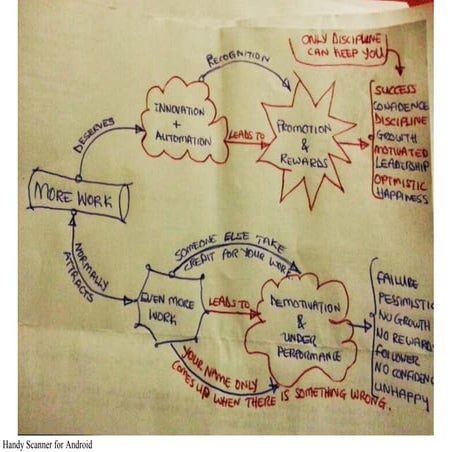 ONLY DISCIPLINE
CAN KEEP YOU
RECOGNITION
INNOVATION
+
AUTOMATION
DESERVES
LEADS TO
PROMOTION
&
REWARDS
SUCCESS
CONFIDENCE
DISCIPLINE
GROWTH
MOTIVATED
LEADERSHIP
OPTMISTIC
HAPPINESS
MORE WORK
NORMALLY
ATTRACTS
SOMEONE ELSE TAKE
CREDIT FOR YOUR WORK
EVEN MORE
WORK
LEADS TO
DEMOTIVATION
&
UNDER
PERFORMANCE
FAILURE
PESSIMISTIC
NO GROWTH
NO REWARD
FOLLOWER
NO CONFIDENC
UNHAPPY
YOUR NAME ONLY
COMES UP WHEN THERE IS SOMETHING WRONG.
Handy Scanner for Android